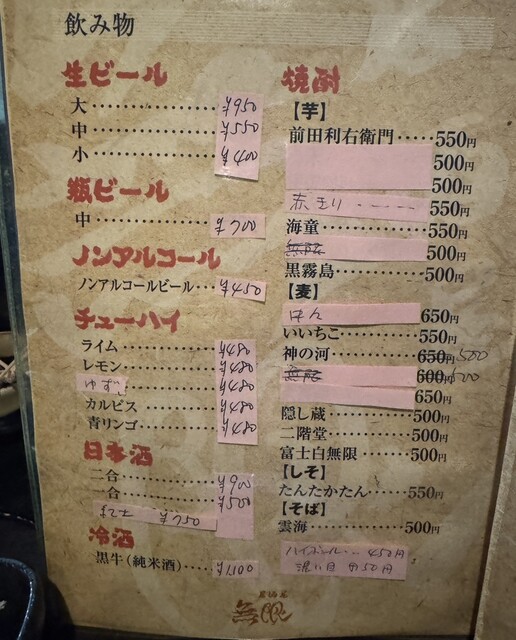 飲み物
生ビール
大 ¥950
中 ¥550
小 ¥400
瓶ビール
中 ¥700
ノンアルコール
ノンアルコールビール ¥450
チューハイ
ライム ¥480
レモン ¥480
ゆず ¥480
カルピス ¥480
青リンゴ ¥480
日本酒
二合 ¥900
一合 ¥500
¥750
冷酒
黒牛(純米酒) ¥1,100
焼酎
【芋】
前田利右衛門 550円
500円
500円
550円
海童 550円
500円
黒霧島 500円
【麦】
650円
いいちこ 550円
神の河 650円 500
600円 500
650円
隠し蔵 500円
二階堂 500円
富士白無限 500円
【しそ】
たんたかたん 550円
【そば】
雲海 500円
ハイボール 450円
濃い目 450円
居酒屋
無限